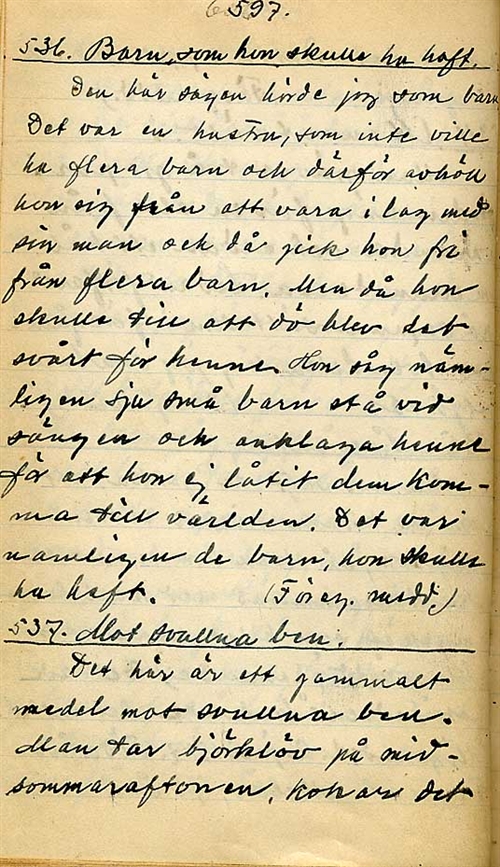 597.
536. Barn, som hon skulle ha haft.
Den här sägen hörde jag som barn
Det var en hustru, som inte ville
ha flera barn och därför avhöll
hon sig från att vara i lag med
sin man och då gick hon fri
från flera barn. Men då hon
skulle till att dö blev det
svårt för henne. Hon såg näm-
ligen sju små barn stå vid
sängen och anklaga henne
för att hon ej låtit dem kom-
ma till världen. Det var
namligen de barn, hon skulle
ha haft. (Föreg. medd.)
537. Mot svullna ben.
Det här är ett gammalt
medel mot svullna ben.
Man tar björklöv på mid-
sommaraftonen, kokar det